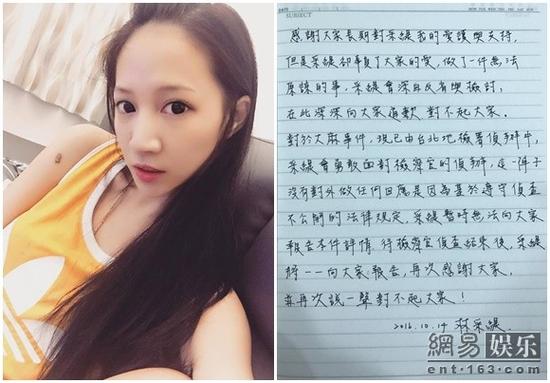 SUBJECT
感謝大家長期對采緹我的愛護與支持,
但是采緹卻辜負了大家的愛,做了一件無法
原諒的事,采緹會深自反省與檢討,
在此深深向大家道歉 對不起大家.
對於大麻事件,現已由台北地檢署偵辦中,
采緹會勇敢面對檢察官的偵辦,這一陣子
沒有對外做任何回應是因為基於遵守偵查
不公開的法律規定,采緹暫時無法向大家
報告案件詳情,待檢察官偵查結束後,采緹
將一一向大家報告,再次感謝大家,
並再次說一聲對不起大家!
2016.10.14 采緹
網易 娱乐
ent·163.com